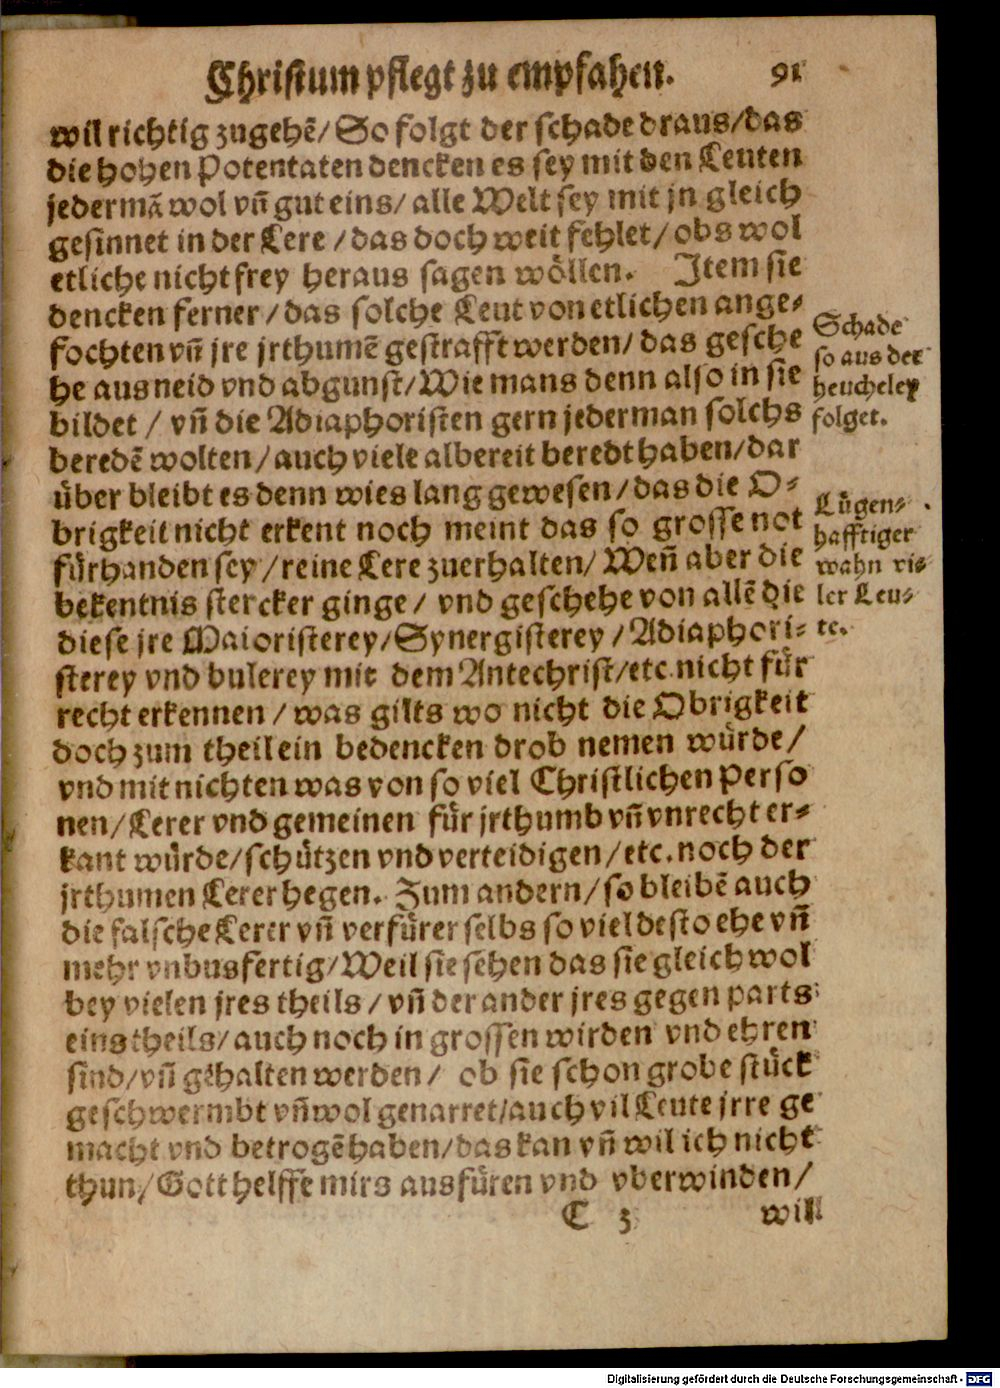 Christum pflegt zu empfahen. 91
wil richtig zugehẽ/ So folgt der schade draus/das
die hohen Potentaten dencken es sey mit den Leuten
jedermã wol vñ gut eins/ alle Welt sey mit jn gleich
gesinnet in der Lere /das doch weit fehlet/ obs wol
etliche nicht frey heraus sagen wöllen. Item sie
dencken ferner /das solche Leut von etlichen ange-
fochten vñ jre jrthumẽ gestrafft werden/ das gesche
he aus neid vnd abgunst/ Wie mans denn also in sie
bildet / vñ die Adiaphoristen gern jederman solchs
beredẽ wolten/auch viele albereit beredt haben/dar
über bleibt es denn wies lang gewesen/das die O-
brigkeit nicht erkent noch meint das so grosse not
fürhanden sey /reine Lere zuerhalten/ Weñ aber die
bekentnis stercker ginge/ vnd geschehe von allẽ die
diese jre Maioristerey/Synergisterey /Adiaphori-
sterey vnd bulerey mit dem Antechrist/etc. nicht für
recht erkennen / was gilts wo nicht die Obrigkeit
doch zum theil ein bedencken drob nemen würde/
vnd mit nichten was von so viel Christlichen Perso
nen/ Lerer vnd gemeinen für jrthumb vñ vnrecht er-
kant würde/schützen vnd verteidigen/etc. noch der
jrthumen Lerer hegen. Zum andern/so bleibẽ auch
die falsche Lerer vñ verfürer selbs so viel desto ehe vñ
mehr vnbusfertig/Weil sie sehen das sie gleich wol
bey vielen jres theils / vñ der ander jres gegen parts
eins theils/auch noch in grossen wirden vnd ehren
sind/vñ gehalten werden/ ob sie schon grobe stück
geschwermbt vñ wol genarret/auch vil Leute jrre ge
macht vnd betrogẽ haben/das kan vñ wil ich nicht
thun/ Gott helffe mirs ausfüren vnd vberwinden/
C 3 will
Schade
so aus der
heucheley
folget.
Lügen-
hafftiger
wahn vie-
ler Leu-
te.
Digitalisierung gefördert durch die Deutsche Forschungsgemeinschaft - DFG